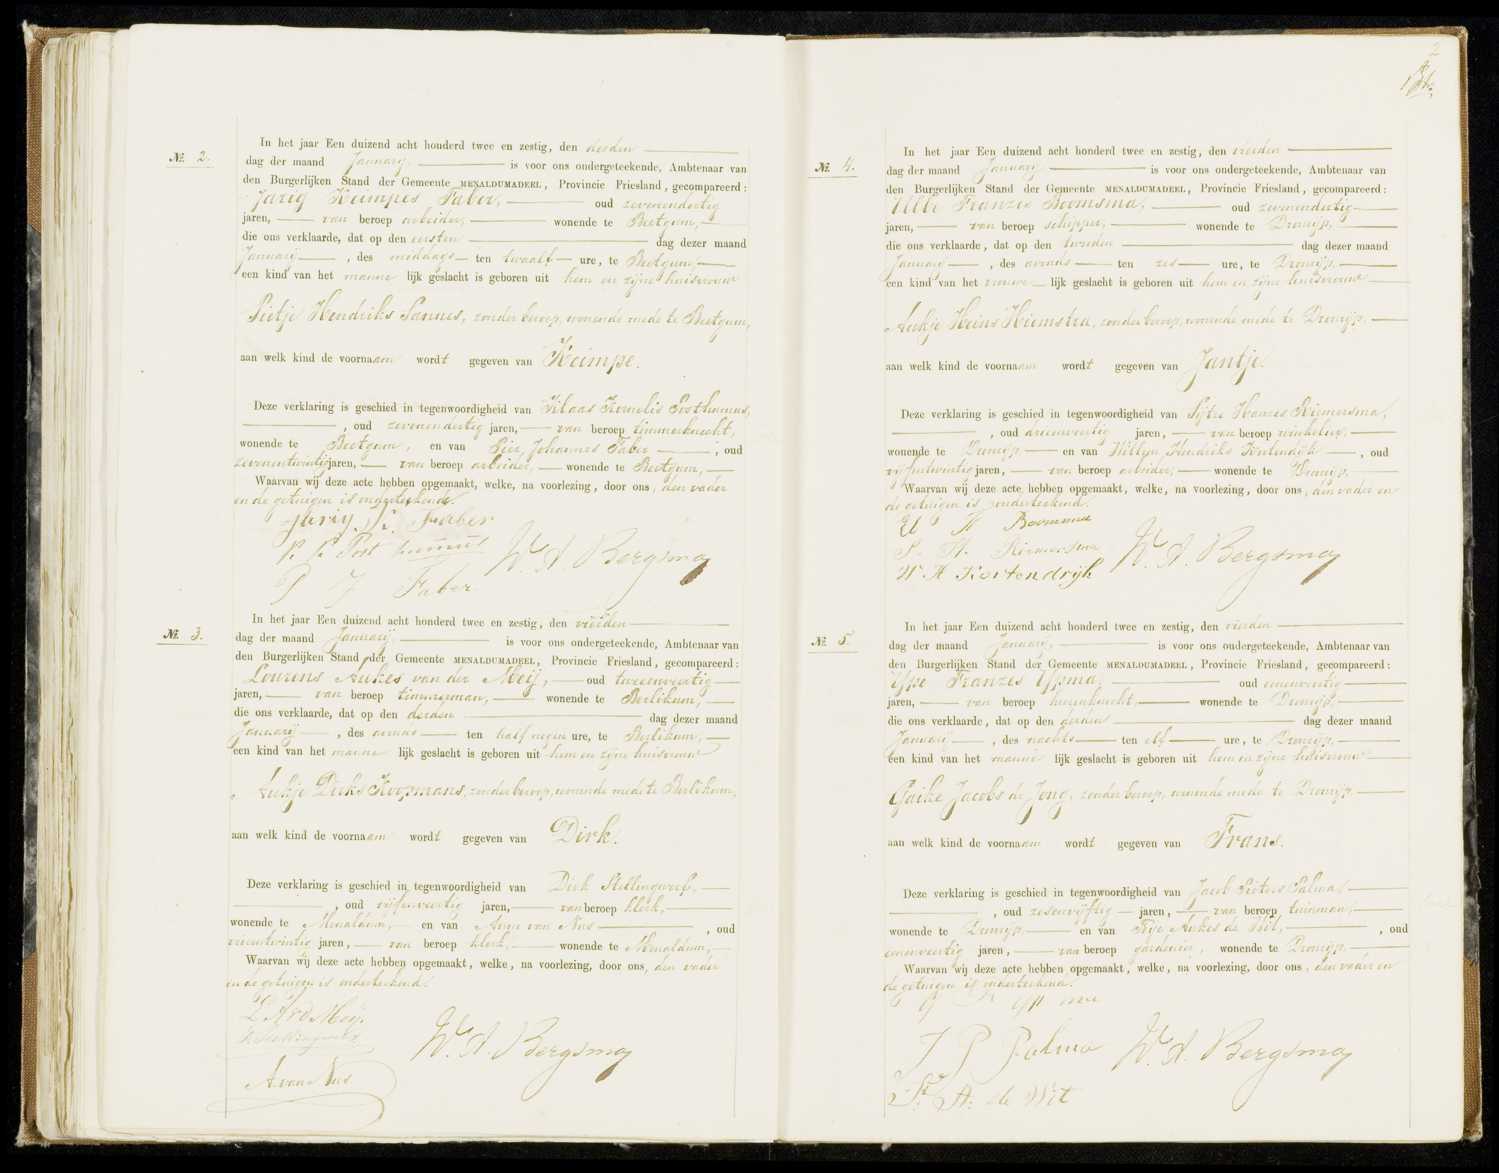 2
№ 2.
In het jaar Een duizend acht honderd twee en zestig, den derden
dag der maand Januarij, is voor ons ondergeteekende, Ambtenaar van
den Burgerlijken Stand der Gemeente MENALDUMADEEL, Provincie Friesland, gecompareerd:
Jarig Keimpes Faber, oud zevenendertig
jaren, van beroep arbeider, wonende te Beetgum,
die ons verklaarde, dat op den eersten dag dezer maand
Januarij, des middags ten twaalf ure, te Beetgum,
een kind van het mannelijk geslacht is geboren uit hem en zijne huisvrouw
Pietje Hendriks Sannes, zonder beroep, wonende mede te Beetgum,
aan welk kind de voornaam wordt gegeven van Keimpe.
Deze verklaring is geschied in tegenwoordigheid van Klaas Kornelis Posthumus,
, oud zevenendertig jaren, van beroep timmerknecht,
wonende te Beetgum, en van Pier Johannes Faber, oud
zevenentwintig jaren, van beroep arbeider, wonende te Beetgum,
Waarvan wij deze acte hebben opgemaakt, welke, na voorlezing, door ons, den vader
en de getuigen is onderteekend.
Jarig K. Faber
K. K. Posthumus W. A. Bergsma
P J Faber
№ 3.
In het jaar Een duizend acht honderd twee en zestig, den vierden
dag der maand Januarij, is voor ons ondergeteekende, Ambtenaar van
den Burgerlijken Stand der Gemeente MENALDUMADEEL, Provincie Friesland, gecompareerd:
Lourens Aukes van der Meij, oud tweeenveertig
jaren, van beroep timmerman, wonende te Berlikum,
die ons verklaarde, dat op den derden dag dezer maand
Januarij, des avonds ten half negen ure, te Berlikum,
een kind van het mannelijk geslacht is geboren uit hem en zijne huisvrouw
Aukje Dirks Koopmans, zonder beroep, wonende mede te Berlikum,
aan welk kind de voornaam wordt gegeven van Dirk.
Deze verklaring is geschied in tegenwoordigheid van Dirk Stellingwerf,
, oud vijfenveertig jaren, van beroep klerk,
wonende te Menaldum, en van Anne van Nus, oud
jaren, van beroep klerk, wonende te Menaldum,
Waarvan wij deze acte hebben opgemaakt, welke, na voorlezing, door ons, den vader
en de getuigen is onderteekend.
L A vd Meij.
D Stellingwerf W. A. Bergsma
A. van Nus
№ 4.
In het jaar Een duizend acht honderd twee en zestig, den vierden
dag der maand Januarij is voor ons ondergeteekende, Ambtenaar van
den Burgerlijken Stand der Gemeente MENALDUMADEEL, Provincie Friesland, gecompareerd:
Ulbe Franzes Boomsma, oud zevenendertig
jaren, van beroep schipper, wonende te Dronrijp,
die ons verklaarde, dat op den tweeden dag dezer maand
Januarij, des avonds ten zes ure, te Dronrijp,
een kind van het vrouwelijk geslacht is geboren uit hem en zijne huisvrouw
Aukje Heins Hiemstra, zonder beroep, wonende mede te Dronrijp,
aan welk kind de voornaam wordt gegeven van Jantje.
Deze verklaring is geschied in tegenwoordigheid van Sijtze Hanzes Riemersma,
, oud drieenveertig jaren, van beroep winkelier,
wonende te Dronrijp en van Willem Hendriks Kortendijk, oud
vijfentwintig jaren, van beroep arbeider, wonende te Dronrijp,
Waarvan wij deze acte hebben opgemaakt, welke, na voorlezing, door ons, den vader en
de getuigen is onderteekend.
Boomsma
S. H. Riemersma W. A. Bergsma
W H Kortendijk
№ 5.
In het jaar Een duizend acht honderd twee en zestig, den vierden
dag der maand Januarij, is voor ons ondergeteekende, Ambtenaar van
den Burgerlijken Stand der Gemeente MENALDUMADEEL, Provincie Friesland, gecompareerd:
Ijpe Franzes Ijpma, oud eenenveertig
jaren, van beroep wonende te Dronrijp,
die ons verklaarde, dat op den derden dag dezer maand
Januarij, des nachts ten elf ure, te Dronrijp,
een kind van het mannelijk geslacht is geboren uit hem en zijne huisvrouw
Gaike Jacobs de Jong, zonder beroep, wonende mede te Dronrijp
aan welk kind de voornaam wordt gegeven van Frans.
Deze verklaring is geschied in tegenwoordigheid van Jacob Pieters Palma,
, oud zesenvijftig jaren, van beroep tuinman,
wonende te Dronrijp en van Aukes de Wit, oud
eenenveertig jaren, van beroep gardenier, wonende te Dronrijp,
Waarvan wij deze acte hebben opgemaakt, welke, na voorlezing, door ons, den vader en
de getuigen is onderteekend.
J P Palma W. A. Bergsma
A: de Wit